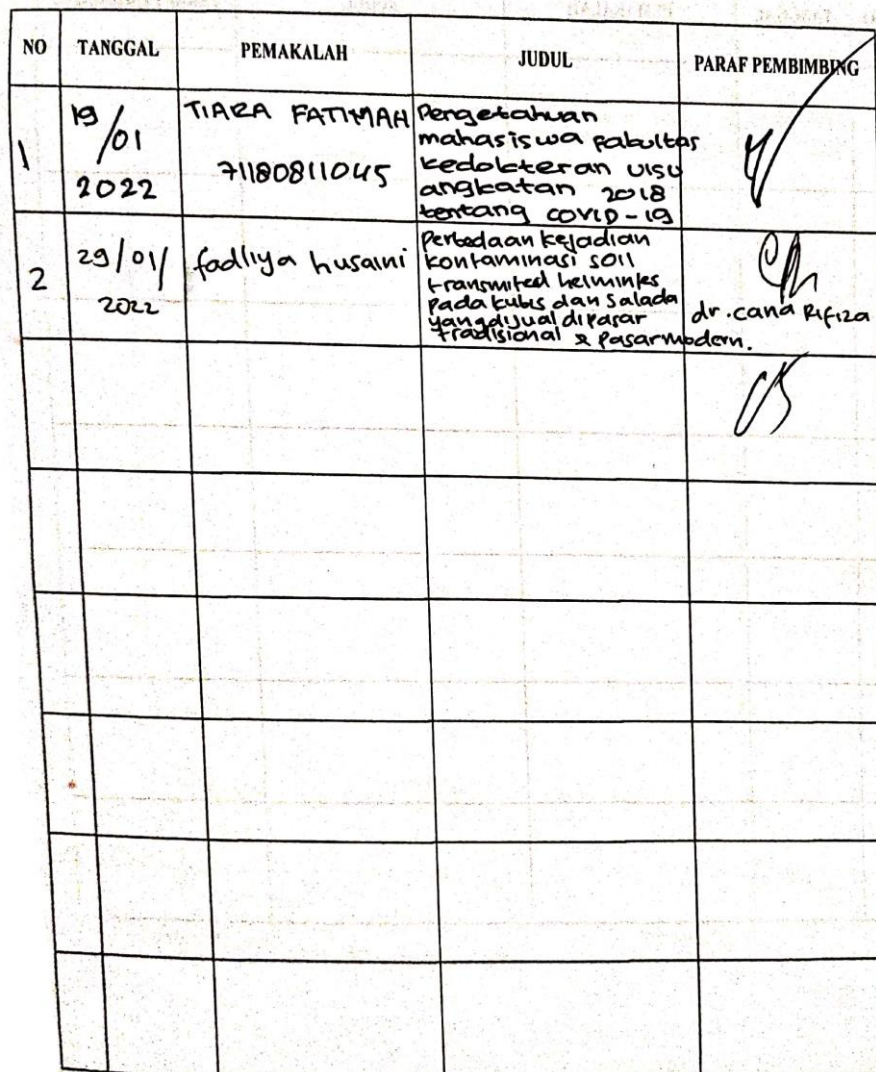 NO TANGGAL PEMAKALAH JUDUL PARAF PEMBIMBING
1
19/01
2022
TIARA FATIMAH
71180811045
Pengetahuan
mahasiswa Fakultas
kedokteran uisu
angkatan 2018
tentang COVID-19
2
29/01/
2022
fadliya husaini
Perbedaan kejadian
kontaminasi soil
transmited helmintes
pada kubis dan Salada
yang dijual dipasar
tradisional & Pasar modern.
dr. cana Rifiza